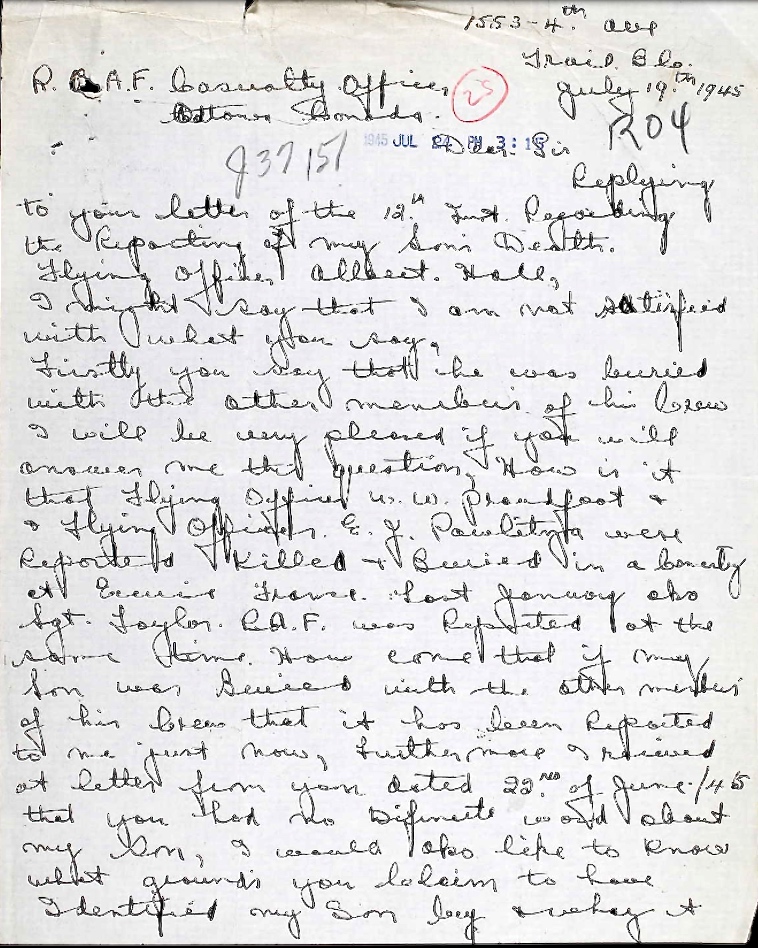 1553-4th ave
Trail B.C.
R.C.A.F. Casualty Office, 25 July 19th 1945
Ottawa Canada. R04
1945 JUL PM 3:15 Dear Sir
J37151
Replying
to your letter of the 12th Inst. Regarding
the Reporting of my Son's Death.
Flying Officer Albert. Hall,
I might say that I am not satisfied
with what you say,
Firstly you say that he was buried
with the other members of his Crew
I will be very pleased if you will
answer me this question, How is it
that Flying Officer W. W. Proudfoot &
& Flying Officer E. J. were
Reported Killed & Buried in a
at France. Last January also
Sgt. Taylor. R.A.F. was Reported at the
same time. How come that if my
Son was Buried with the other members
of his Crew that it has been Reported
to me just now, Furthermore I recieved
at letter from you dated 22nd of June/45
that you had no Difinite word about
my Son, I would also like to know
what grounds you Claim to have
Identified my Son by & why it